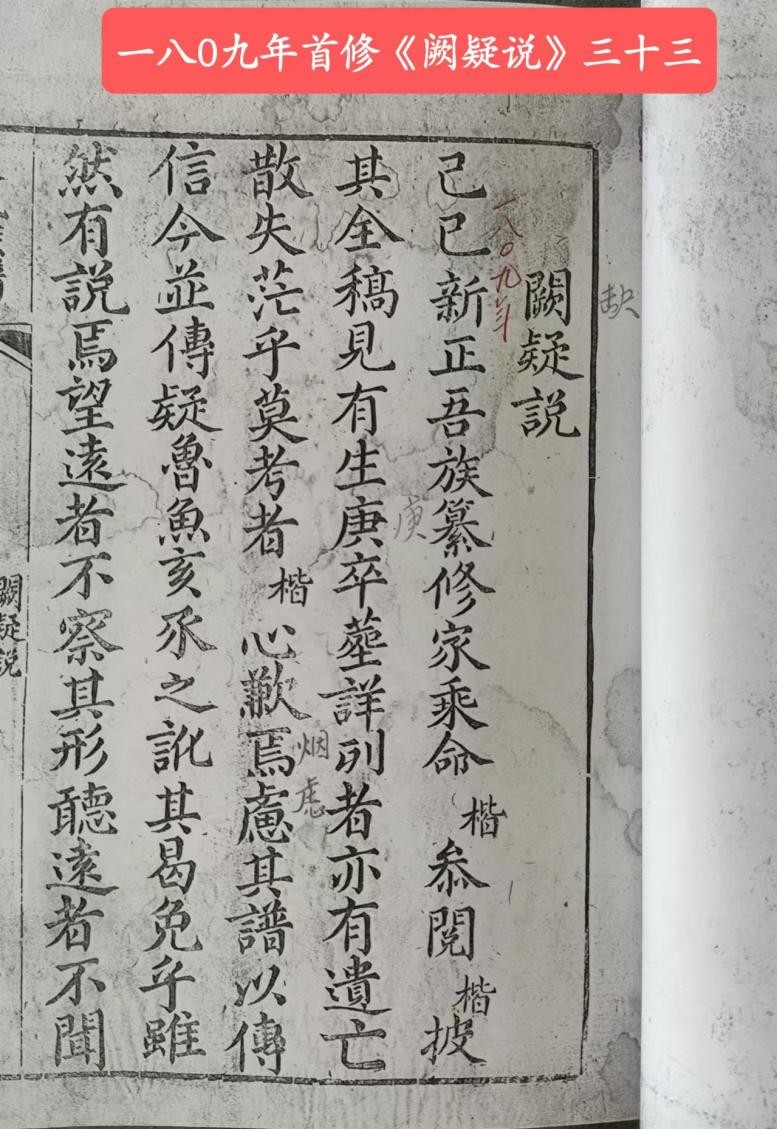 一八0九年首修《阙疑说》三十三
缺
闕疑説
一八〇九年
己巳新正吾族纂修家乘命楷叅閱楷披
庚
其全稿見有生庚卒塟詳列者亦有遺亡
烟虑
散失茫乎莫考者楷心歉焉慮其譜以傳
信今並傳疑魯魚亥豕之訛其曷免乎雖
然有説焉望遠者不察其形聽遠者不聞
闕疑説